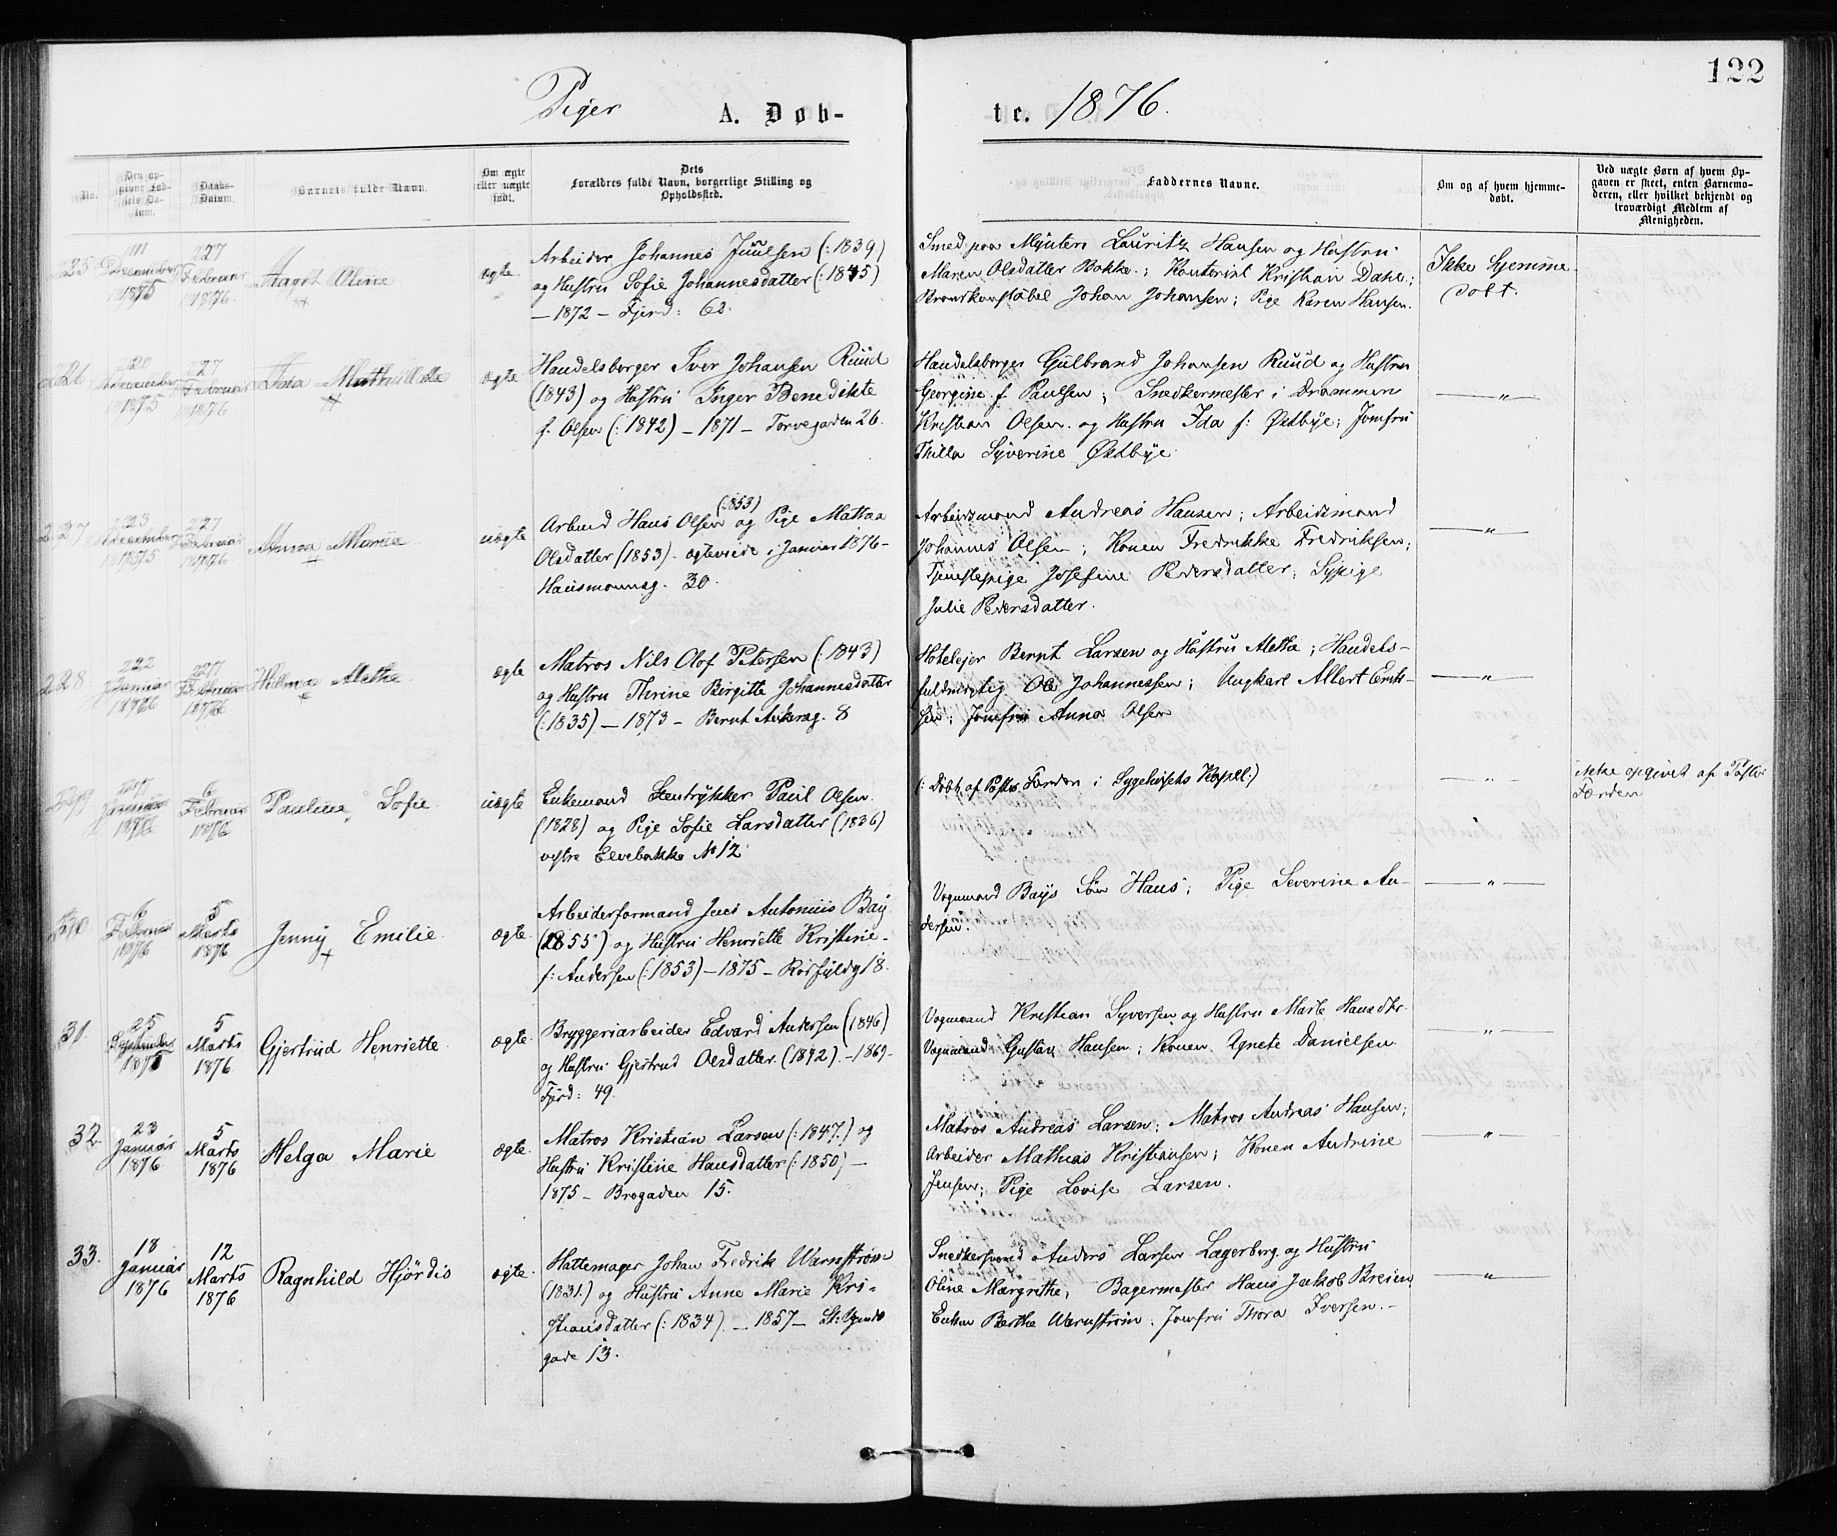 122
Piger A. Døb-
te. 1876.
No.
Den op-
givne Fød-
sels Da-
tum.
Daabs-
Datum.
Barnets fulde Navn.
Om ægte
eller uægte
født.
Dets
Forældres fulde Navn, borgerlige Stilling og
Opholdssted.
Faddernes Navne.
Om og af hvem hjemme-
døbt.
Ved uægte Børn af hvem Op-
gaven er skeet, enten Barnemo-
deren, eller hvilket bekjendt og
troværdigt Medlem af
Menigheden.
25
December
1875
27
Februar
1876
Aagot Oline
ægte
Arbeider Johannes Juulsen (: 1839)
og Hustru Sofie Johannesdatter (: 1845)
— 1872 — Fjerd: 62.
Smed paa Mynten Lauritz Hansen og Hustru
Maren Olsdatter Bakke; Kontorist Kristian Dahl;
Brandkonstabel Johan Johansen; Pige Karen Hansen.
Ikke hjemme
døbt.
26
20
December
1875
27
Februar
1876
Ida Mathilde
ægte
Handelsborger Iver Johansen Ruud
(1843) og Hustru Inger Benedikte
f. Olsen (: 1842) — 1871 — Torvegaden 26.
Handelsborger Gulbrand Johansen Ruud og Hustru
Georgine f. Paulsen; Snedkermester i Drammen
Kristian Olsen og Hustru Ida f: Østbye; Jomfru
Thilla Syverine Østbye.
— " —
27
23
December
1875
27
Februar
1876
Anna Marie
uægte
Arbmd Hans Olsen (: 1853) og Pige Mathea
Olsdatter (1853) - ægteviede i Januar 1876 -
Hausmannsg. 30.
Arbeidsmand Andreas Hansen; Arbeidsmand
Johannes Olsen; Konen Fredrikke Fredriksen;
Tjenestepige Josefine Pedersdatter; Sypige
Julie Pedersdatter.
— " —
28
22
Januar
1876
27
Februar
1876
Hilma Alethe
ægte
Matros Nils Olof Petersen (: 1843)
og Hustru Thrine Birgitte Johannesdatter
(: 1835) — 1873 — Bernt Ankersg. 8
Hoteleier Bernt Larsen og Hustru Aletha; Handels-
fuldmægtig Ole Johannessen; Ungkarl Albert Erik-
sen; Jomfru Anna Olsen
— " —
29
Januar
1876
6
Februar
1876
Pauline Sofie
uægte
Enkemand Stentrykker Paul Olsen
(1828) og Pige Sofie Larsdatter (1836)
vestre Elvebakke No 12
(: Døbt af Pastor Færden i Sygehusets Kapel:)
— " —
ikke opgivet af Pastor
Færden
30
6
Februar
1876
5
Marts
1876
Jenny Emilie
ægte
Arbeiderformand Jens Antonius Bay
(1855) og Hustru Henriette Kristine
f: Andersen (: 1853) — 1875 — Rosfyldg 18.
Vognmand Bays Søn Hans; Pige Severine An-
dersen.
— " —
31.
25
September
1875
5
Marts
1876
Gjertrud Henriette
ægte
Bryggeriarbeider Edvard Andersen (1846)
og Hustru Gjertrud Olsdatter (1842). - 1869 -
Fjrd: 49.
Vognmand Kristian Syversen og Hustru Marte Hansdtr.
Vognmand Gustav Hansen; Konen Agnete Danielsen.
— " —
32.
23
Januar
1876
5
Marts
1876
Helga Marie
ægte.
Matros Kristian Larsen (: 1847.) og
Hustru Kristine Hansdatter (: 1850) —
1875 — Brogaden 15.
Matros Andreas Larsen; Matros Andreas Hansen;
Arbeider Mathias Kristiansen; Konen Andrine
Jensen; Pige Lovise Larsen.
— " —
33.
18
Januar
1876
12
Marts
1876
Ragnhild Hjørdis
ægte.
Hattemager Johan Fredrik Warnstrøm
(1831.) og Hustru Anne Marie Kri-
stiansdatter (: 1834). — 1857 — St: Olavs
gade 13.
Snedkersvend Anders Larsen Lagerberg og Hustru
Oline Margrethe; Bagermester Hans Jakob Breien
Enken Berthe Warnstrøm; Jomfru Thora Iversen. -
— " —